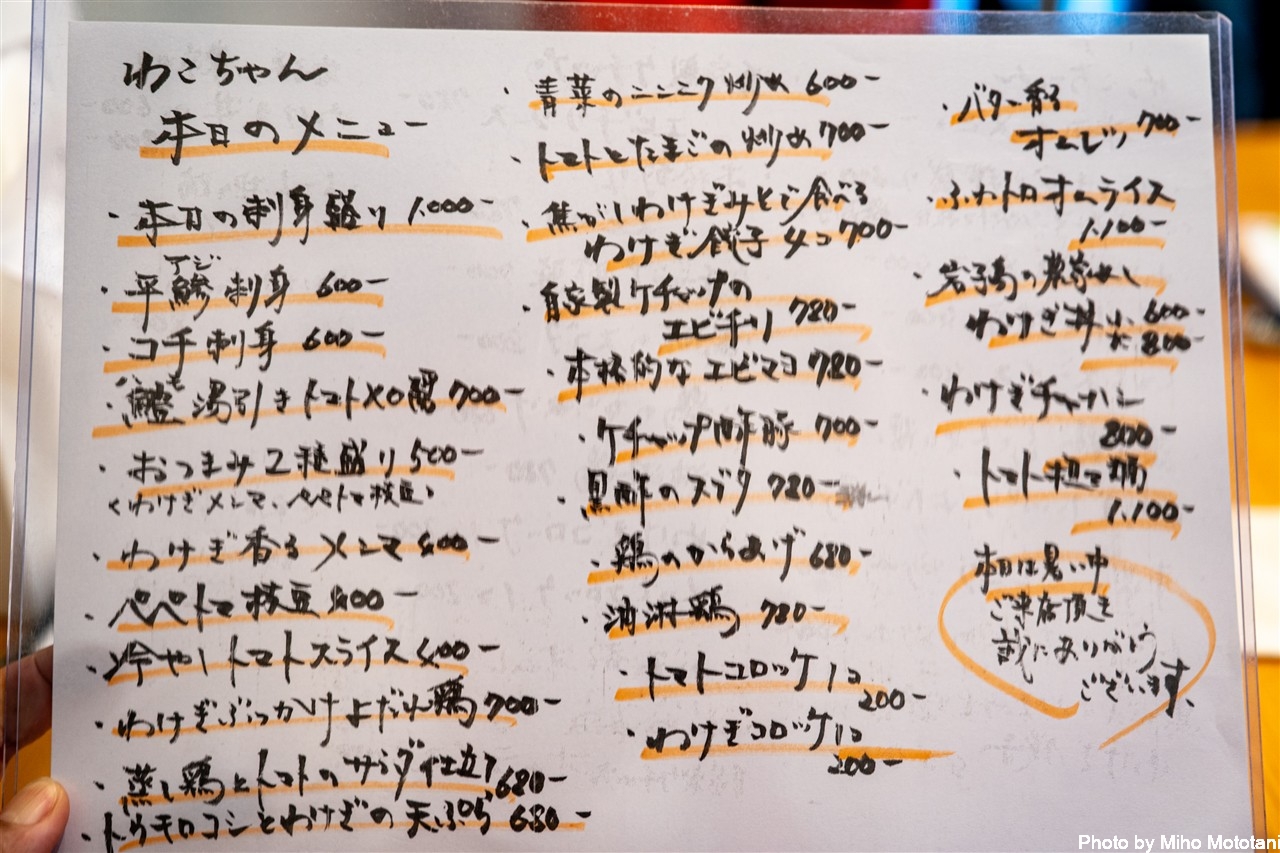 わこちゃん
本日のメニュー
・本日の刺身盛り 1,000-
アジ
・平鯵刺身 600-
・コチ刺身 600-
ハモ
・鱧湯引きトマト 700-
・おつまみ2種盛り 500-
(わけぎメンマ、ペペトマ枝豆)
・わけぎ香るメンマ 400-
・ペペトマ枝豆 400-
・冷やしトマトスライス 400-
・わけぎぶっかけよだれ鶏 700-
・蒸し鶏とトマトのサラダ仕立て 680-
・トウモロコシとわけぎの天ぷら 680-
・青菜のニンニク炒め 600-
・トマトとたまごの炒め 700-
・焦がしわけぎみそで食べる
わけぎ餃子 4コ 700-
・自家製ケチャップの
エビチリ 780-
・本格的なエビマヨ 780-
・ケチャップ酢豚 700-
・黒酢のスブタ 780-
・鶏のからあげ 680-
・油淋鶏 780-
・トマトコロッケ 1コ
200-
・わけぎコロッケ 1コ
200-
・バター香る
オムレツ 700-
・ふわトロオムライス
1,100-
・岩子島の農家
わけぎ丼 小 600-
大 800-
・わけぎチャーハン
800-
・トマト担々麺
1,100-
本日は暑い中
ご来店頂き
誠にありがとう
ございます、
Photo by Miho Mototani